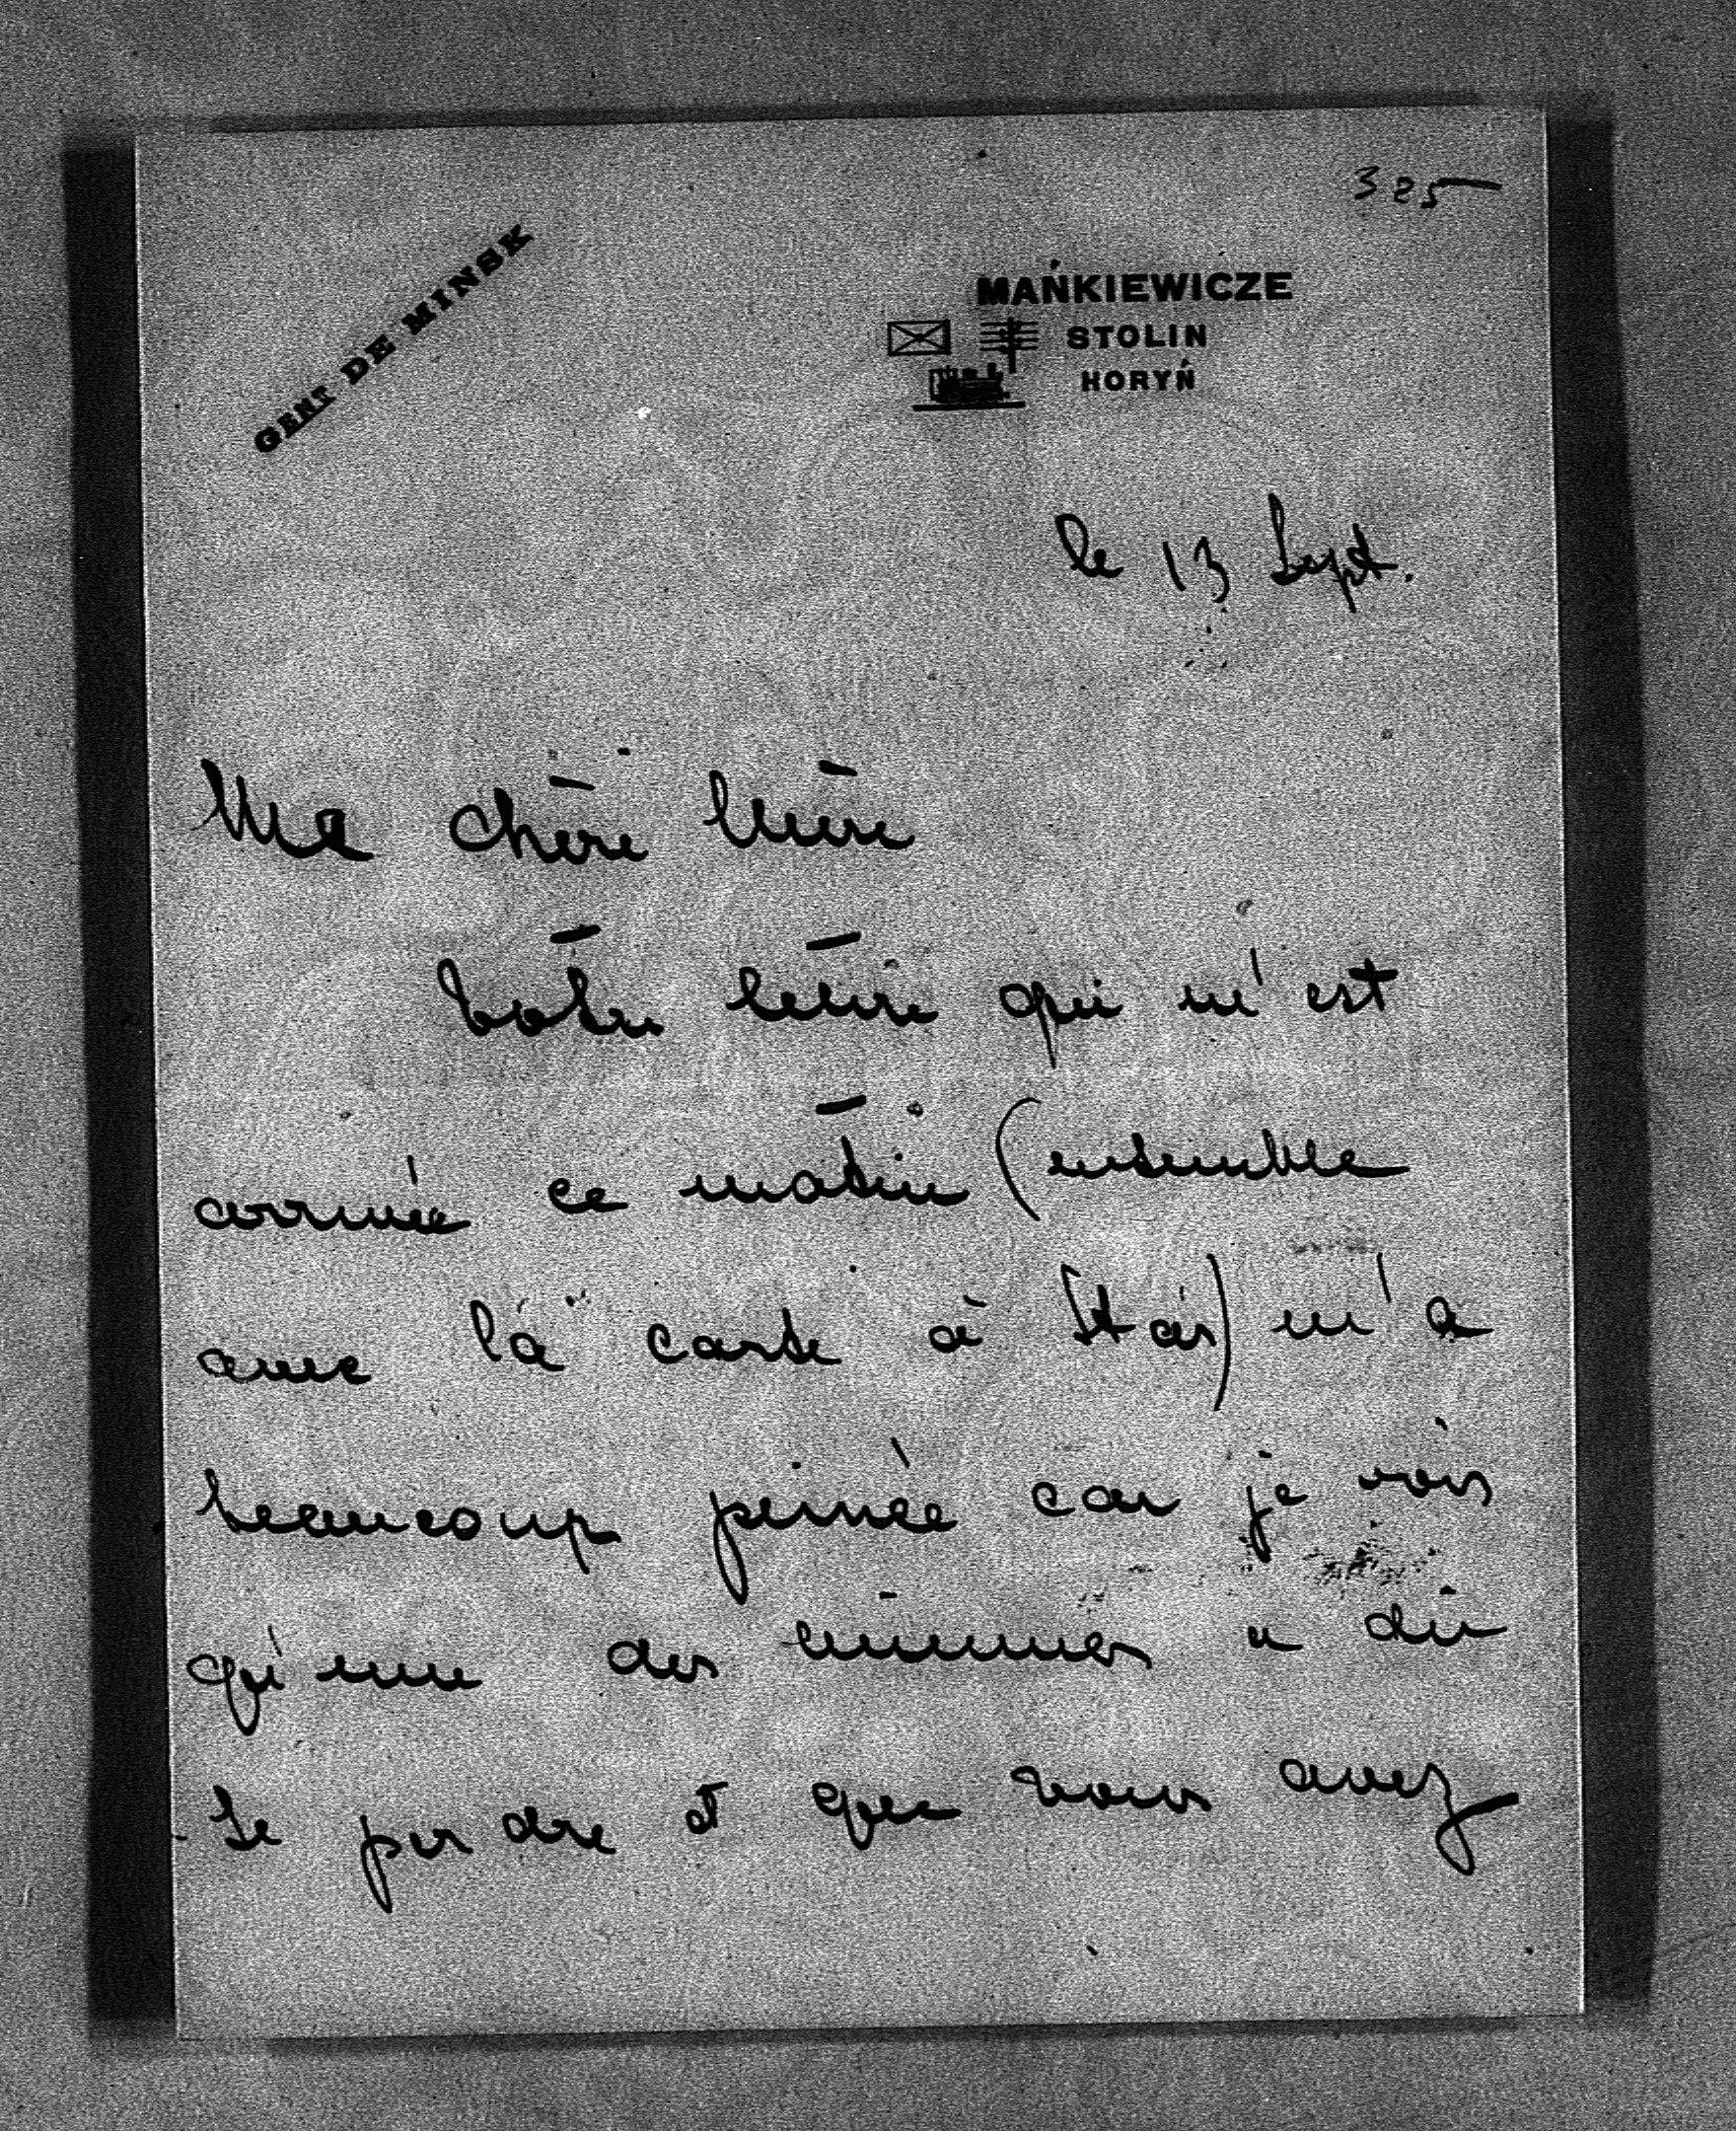 325
GENT DE MINSK
MAŃKIEWICZE
STOLIN
HORYŃ
le 13 Sept.
Ma chère Mère
Votre lettre qui m'est
arrivée ce matin (ensemble
avec la carte à Staś) m'a
beaucoup peinée car je vois
qu'une des miennes a dû
se perdre et que vous avez